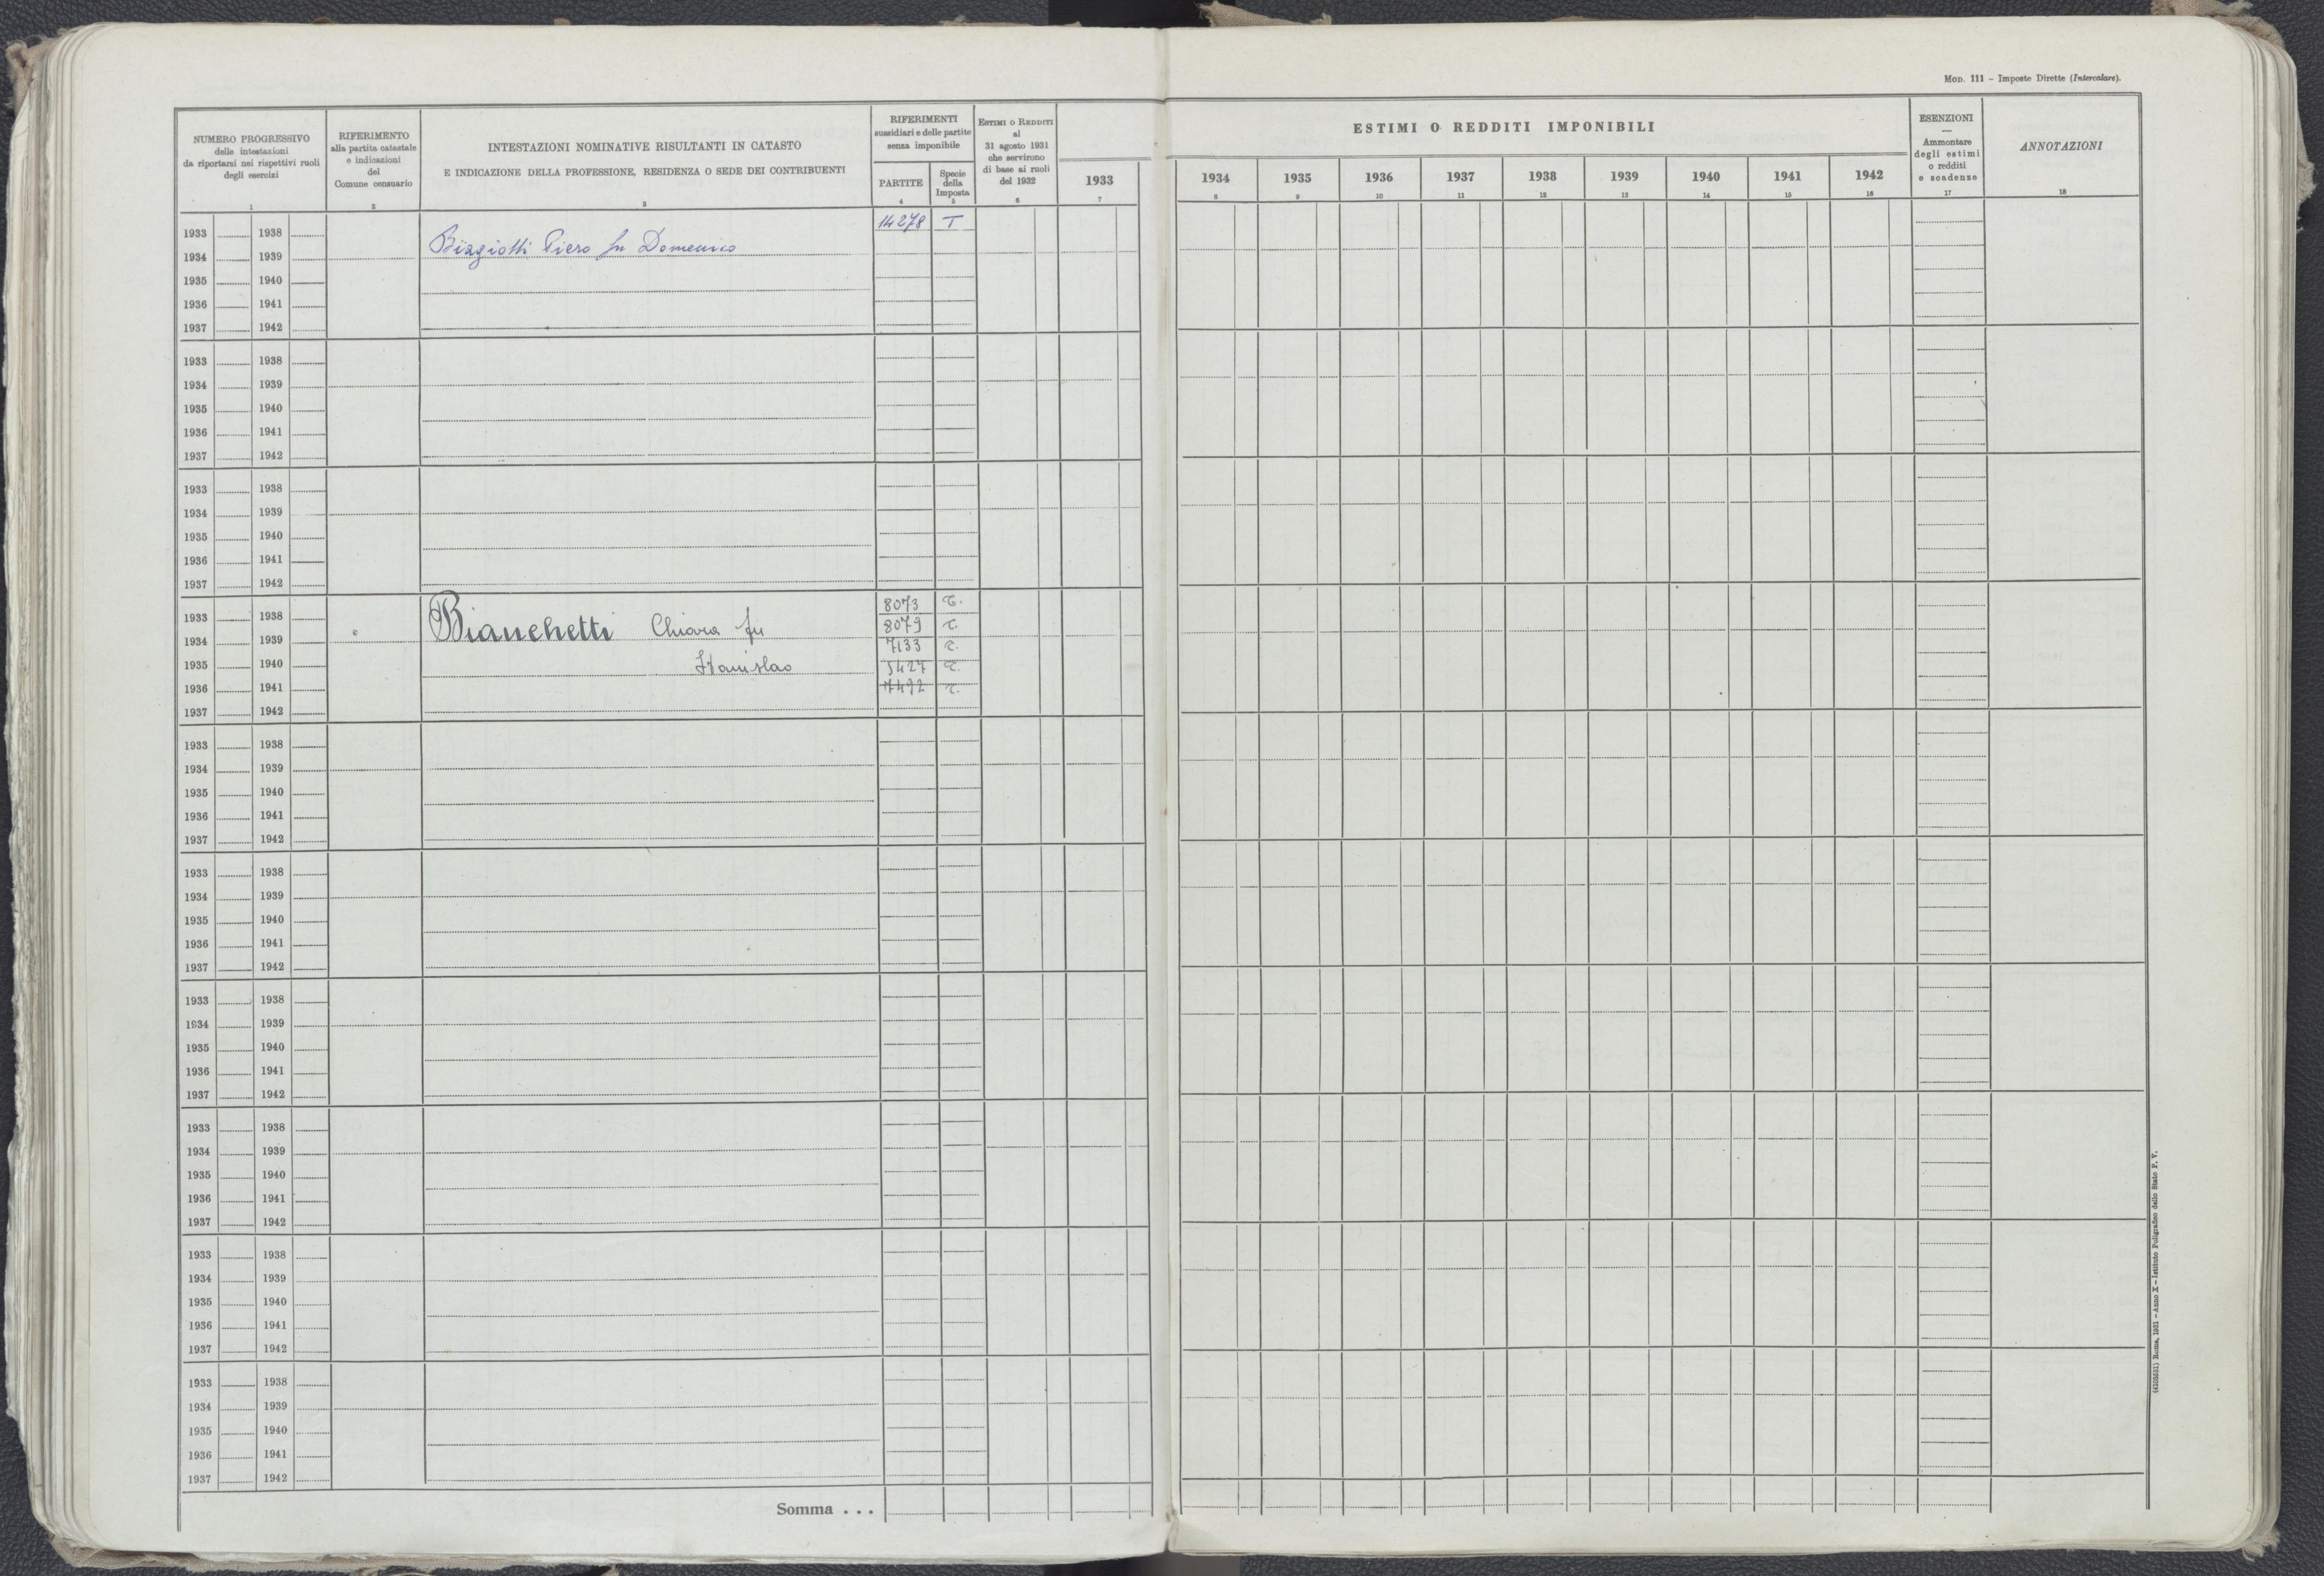 Mod. 111 - Imposte Dirette (Intercalare).
NUMERO PROGRESSIVO
delle intestazioni
da riportarsi nei rispettivi ruoli
degli esercizi
1
RIFERIMENTO
alla partita catastale
e indicazioni
del
Comune censuario
2
INTESTAZIONI NOMINATIVE RISULTANTI IN CATASTO
E INDICAZIONE DELLA PROFESSIONE, RESIDENZA O SEDE DEI CONTRIBUENTI
3
RIFERIMENTI
sussidiari e delle partite
senza imponibile
PARTITE
4
Specie
della
Imposta
5
Estimi o Redditi
al
31 agosto 1931
che servirono
di base ai ruoli
del 1932
6
1933
7
ESTIMI O REDDITI IMPONIBILI
1934 1935 1936 1937 1938 1939 1940 1941 1942
8 9 10 11 12 13 14 15 16
ESENZIONI
—
Ammontare
degli estimi
o redditi
e scadenze
17
ANNOTAZIONI
18
14278 T
1933 1938
Biagiotti Piero fu Domenico
1934 1939
1935 1940
1936 1941
1937 1942
1933 1938
1934 1939
1935 1940
1936 1941
1937 1942
1933 1938
1934 1939
1935 1940
1936 1941
1937 1942
8073 T.
1933 1938
Bianchetti Chiara fu 8079 T.
1934 1939
7133 T.
1935 1940
Stanislao 5427 T.
1936 1941
7492 T.
1937 1942
1933 1938
1934 1939
1935 1940
1936 1941
1937 1942
1933 1938
1934 1939
1935 1940
1936 1941
1937 1942
1933 1938
1934 1939
1935 1940
1936 1941
1937 1942
1933 1938
1934 1939
1935 1940
1936 1941
1937 1942
1933 1938
1934 1939
1935 1940
1936 1941
1937 1942
1933 1938
1934 1939
1935 1940
1936 1941
1937 1942
Somma . . .
Roma, 1931 - Anno X - Istituto Poligrafico dello Stato P. V.